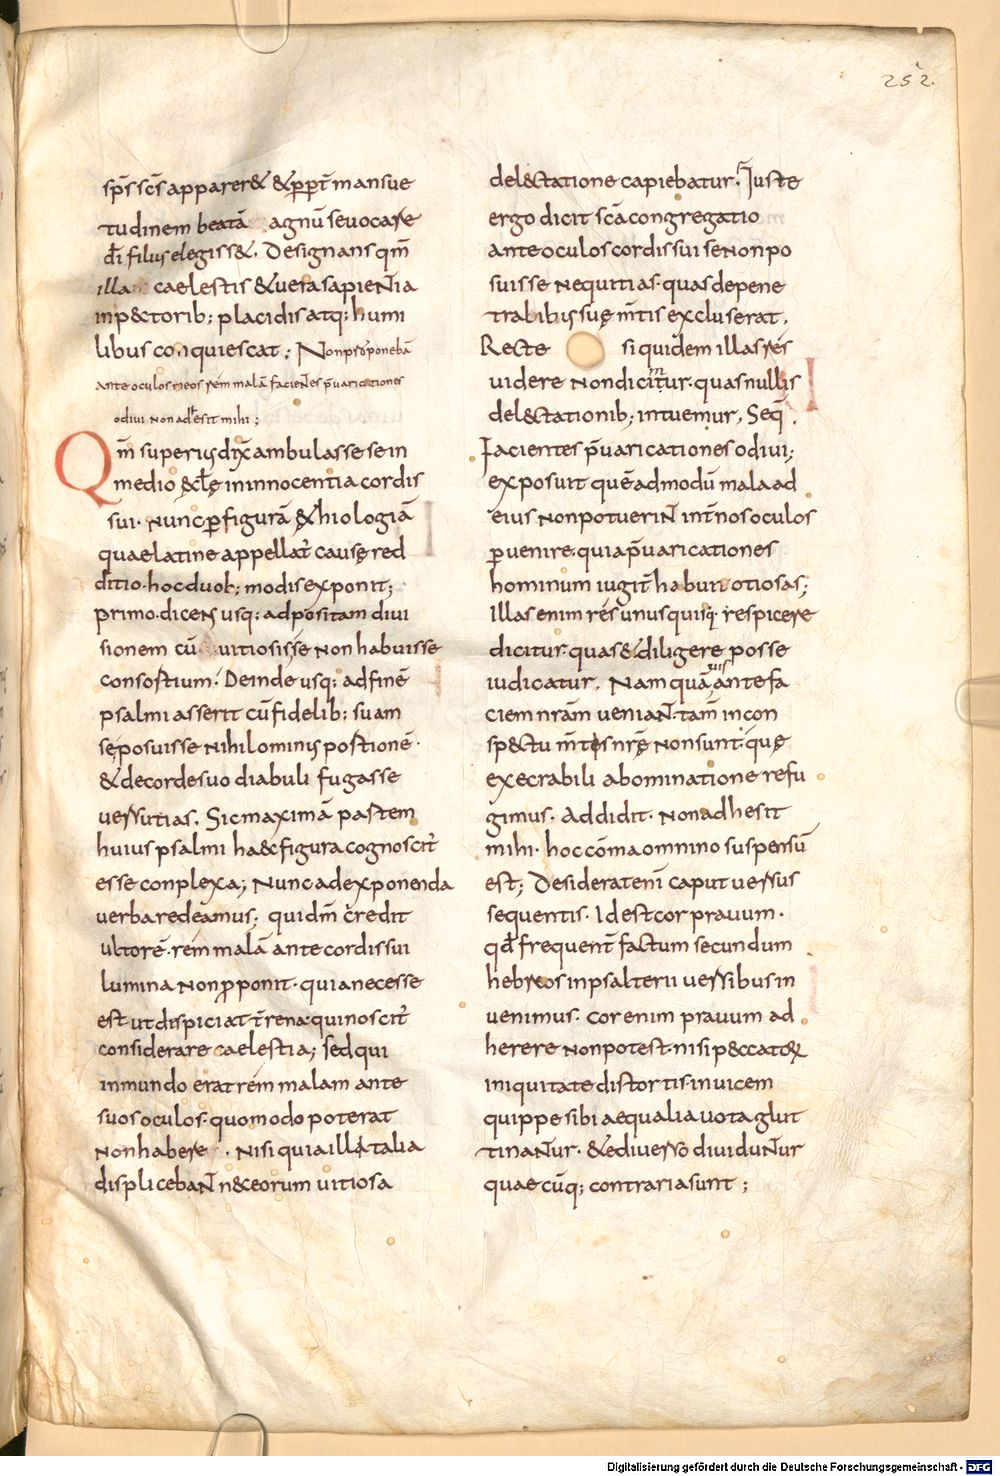 252.
sp̄s sc̄s apparer& &ꝓpt̄ mansue
tudinem beatā agnū se uocare
dī filius elegiss&. Designans qm̄
illa caelestis &uera sapientia
inp&torib; placidis atq: humi
libus conquiescat; Nonproponebā
ante oculos meos rem malā facientes p̄uaricationes
odiui non adhesit mihi;
Qm̄ superius dix ambulasse se in
medio &cłę in innocentia cordis
sui. Nunc per figurā &hiologiā
quae latine appellat̄ causę red
ditio. hoc duob; modis exponit;
primo. dicens usq: ad positam diui
sionem cū uitiosis se non habuisse
consortium. Deinde usq: ad finē
psalmi asserit cū fidelib; suam
se posuisse nihilominus portionē.
& de corde suo diabuli fugasse
uersutias. Sic maximā partem
huius psalmi haec figura cognoscit̄
esse conplexa; Nunc ad exponenda
uerba redeamus. quidm̄ credit
ultorē. rem malā ante cordis sui
lumina non ꝓponit. quia necesse
est. ut dispiciat t̄rena. qui noscit̄
considerare caelestia; sed qui
inmundo erat rem malam ante
suos oculos. quomodo poterat
non habere. Nisi quia illi talia
displicebant n&eorum uitiosa
del&tatione capiebatur. Iuste
ergo dicit sc̄a congregatio
ante oculos cordis sui se non po
suisse nequitias. quas de pene
trabilibus suę m̄tis excluserat.
Recte si quidem illas res
uidere non dicimtur. quas nullis
del&tationib; intuemur, Seq̄.
Facientes p̄uaricationes odiui;
exposuit quēadmodū mala ad
eius non potuerint int̄nos oculos
peruenire. quia p̄uaricationes
hominum iugit̄ habuit otiosas;
Illas enim res unusquisq. respicere
dicitur. quas &diligere posse
iudicatur. Nam quāuis ante fa
ciem nr̄am ueniant. tam̄ in con
sp&tu m̄tes nr̄ę non sunt. quę
execrabili abominatione refu
gimus. Addidit. Non adhesit
mihi. hoc cōma omnino suspensū
est; Desiderat eni caput uersus
sequentis. Id est cor prauum.
qđ frequent̄ factum secundum
hebreos in psalterii uersibus in
uenimus. Cor enim prauum ad
herere non potest. nisi peccator
iniquitate distortis. inuicem
quippe sibi aequalia uota glut
tinantur. &ediuerso diuiduntur
quaecūq; contraria sunt;
Digitalisierung gefördert durch die Deutsche Forschungsgemeinschaft - DFG